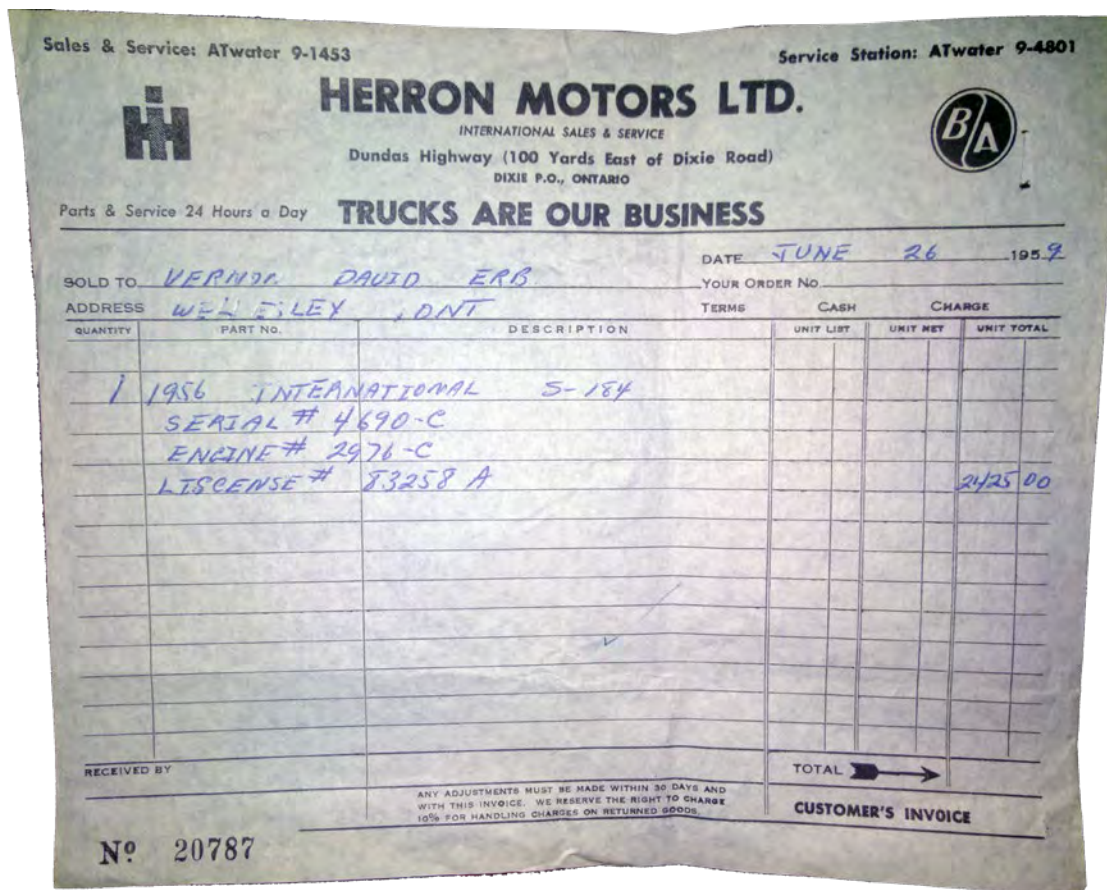 Sales & Service: ATwater 9-1453
Service Station: ATwater 9-4801
IH
HERRON MOTORS LTD.
B/A
INTERNATIONAL SALES & SERVICE
Dundas Highway (100 Yards East of Dixie Road)
DIXIE P.O., ONTARIO
Parts & Service 24 Hours a Day TRUCKS ARE OUR BUSINESS
DATE JUNE 26 1959
SOLD TO VERNON DAVID ERB YOUR ORDER NO.
ADDRESS WELLESLEY, ONT TERMS CASH CHARGE
QUANTITY PART NO. DESCRIPTION UNIT LIST UNIT NET UNIT TOTAL
1 1956 INTERNATIONAL S-184
SERIAL # 4690-C
ENGINE # 2976-C
LISCENSE # 83258 A 2425 00
RECEIVED BY TOTAL
ANY ADJUSTMENTS MUST BE MADE WITHIN 30 DAYS AND
WITH THIS INVOICE. WE RESERVE THE RIGHT TO CHARGE
10% FOR HANDLING CHARGES ON RETURNED GOODS.
CUSTOMER'S INVOICE
Nº 20787